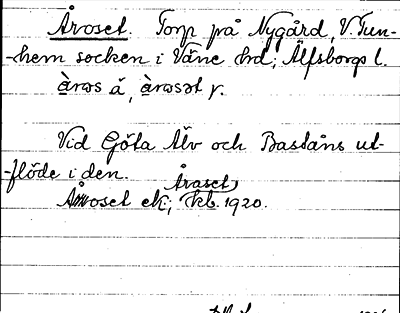 Åroset. Torp på Nygård, V. Tun-
-hem socken i Väne hd; Älfsborgs l.
àrɷs å, àrɷsət r.
Vid Göta Älv och Baståns ut-
-flöde i den.
Åraset,
Åroset ek; kb. 1920.